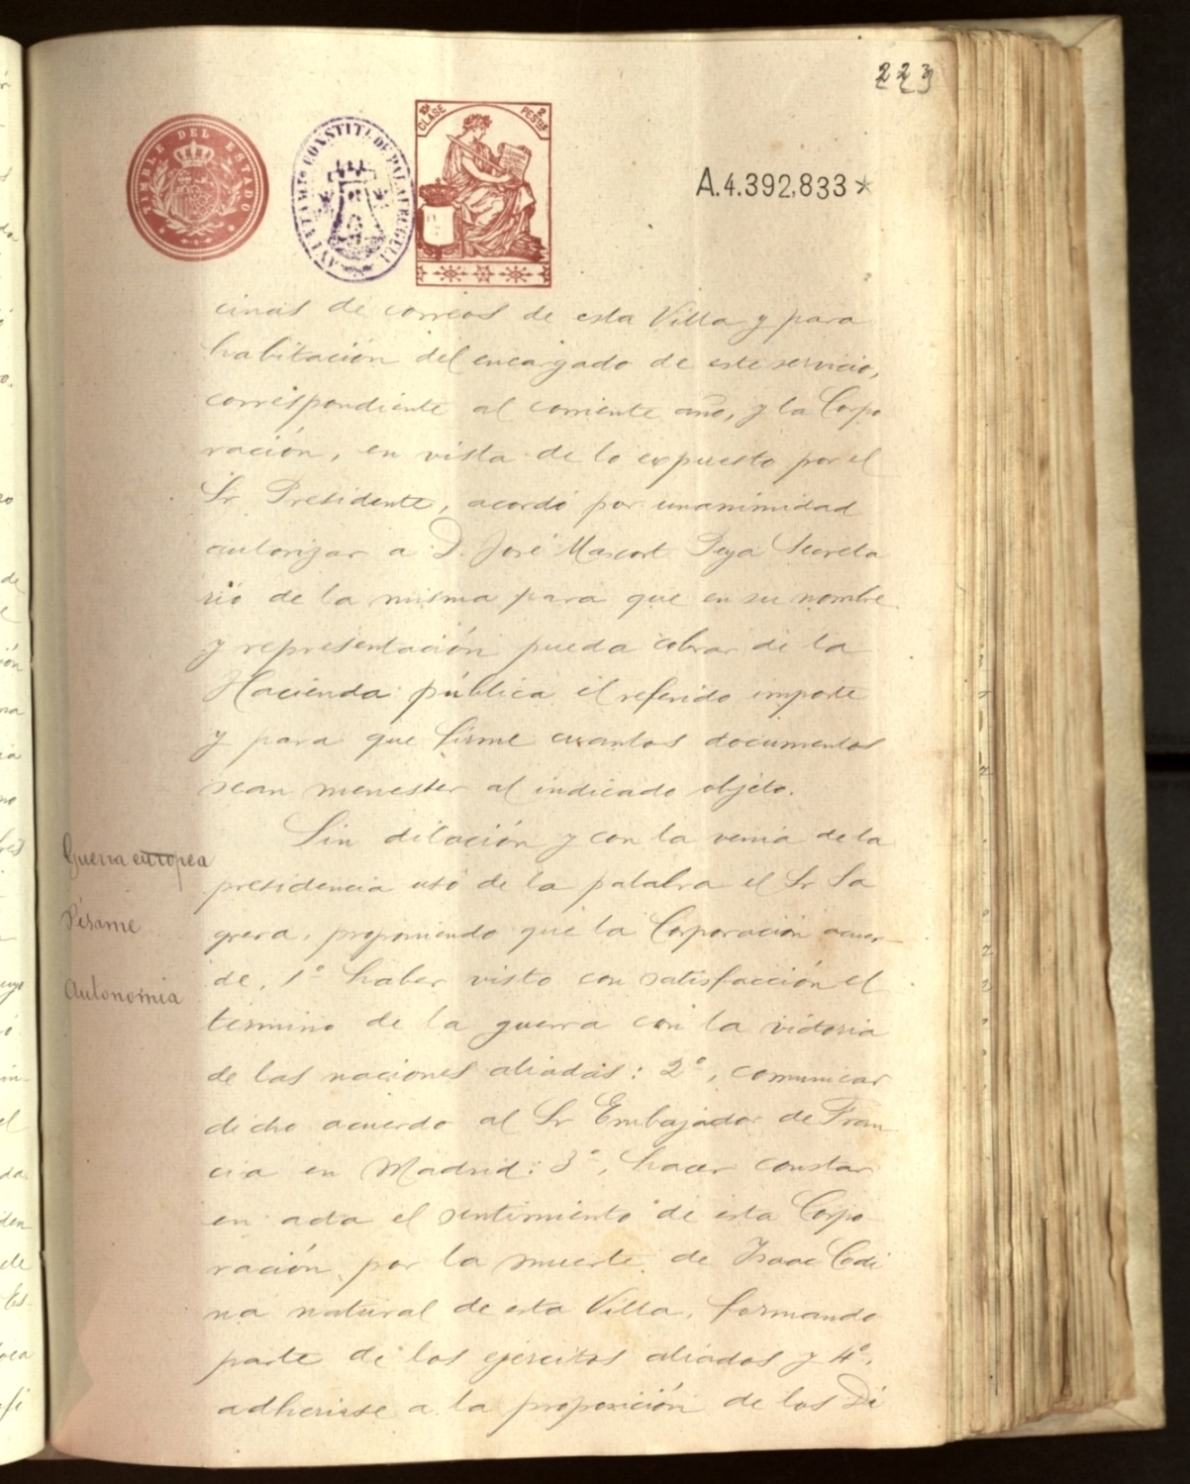 223
TIMBLE DEL ESTADO
AYUNTAMTO CONSTITL DE PALAFRUGELL
10ª CLASE 2 PESETAS
A.4.392,833*
cinas de correos de esta Villa y para
habitación del encargado de este servicio,
correspondiente al corriente año, y la Corpo
ración, en vista de lo expuesto por el
Sr Presidente, acordó por unanimidad
autorizar a D. José Mascort Secreta
rio de la misma para que en su nombre
y representación pueda cobrar de la
Hacienda pública el referido importe
y para que firme cuantos documentos
sean menester al indicado objeto.
Sin dilación y con la venia de la
Guerra europea
presidencia usó de la palabra el Sr Sa
grera, proponiendo que la Corporación acuer
Pésame
de, 1º haber visto con satisfacción el
Autonomia
término de la guerra con la victoria
de las naciones aliadas: 2º, comunicar
dicho acuerdo al Sr Embajador de Fran
cia en Madrid: 3º, hacer constar
en acta el sentimiento de esta Corpo
ración por la muerte de Isaac Codi
na natural de esta Villa, formando
parte de los ejércitos aliados y 4º,
adherirse a la proposición de los Di